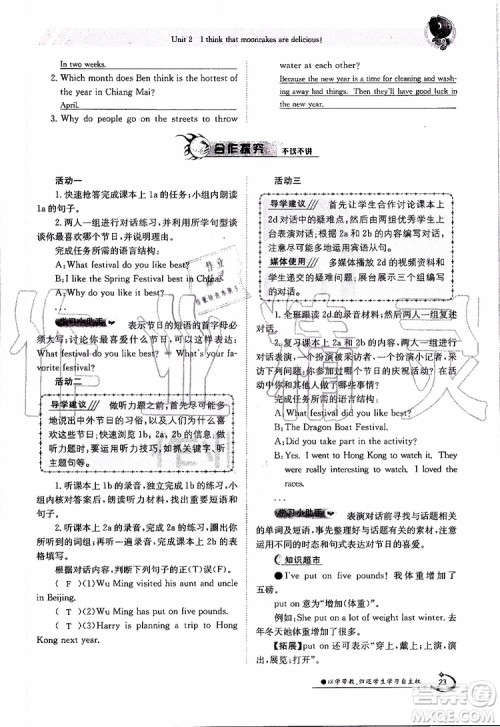 Unit 2 I think that mooncakes are delicious!
In two weeks.
2. Which month does Ben think is the hottest
of the year in Chiang Mai?
April.
3. Why do people go on the streets to throw
water at each other?
Because the new year is a time for cleaning and wash-
ing away bad things. Then they'll have good luck
in the new year.
合作探究 不议不讲
活动一
1. 快速抢答完成课本上 1a 的任务;小组内朗读
1a 的句子。
2. 两人一组进行对话练习,并用所学句型向同
伴询问彼此最喜欢哪个节日,并谈论喜欢的原因,
互动展示。
完成任务所需的语言结构:
A: What festival do you like best?
B: I like the Spring Festival best in China.
A: ...
学习小助手 表示节日的短语的首字母必
须大写;讨论你最喜欢的节日用句型:
What festival do you like best? = What's your fa-
vorite festival?
活动二
导学建议 做听力题之前,首先尽可能多
地说出中外节日的习俗,以及人们为什么喜
欢这些节日;快速浏览 1b、2a、2b 的信息,做
听力题的时候要留心,如抓关键字、听
主题句等。
1. 听课本上 1b 的录音,独立完成任务,然后
小组内核对答案,朗读对话录音。
2. 听课本上 2a 的录音,完成 2a 的任务,写出
所听到的词组;再听一遍录音,完成 2b 的
表格填写。
根据对话内容,判断正(T)误(F)。
( F )(1)Wu Ming visited his aunt and uncle
in Beijing.
( T )(2)Wu Ming has put on five pounds.
( T )(3)Harry is planning a trip to Hong
Kong next year.
活动三
导学建议 首先让学生合作讨论课本上
2d 对话中的疑难点,然后利用多余时间让优秀学生
上台表演对话,对 2a 和 2b 的内容编写对话时,
注意尽量多地运用宾语从句。
媒体使用 多媒体播放 2d 的视频资料和
学生递交的疑难问题;展示有关节日的语言
结构。
1. 全班跟读 2d 的录音材料;两人一组复述对
话。
2. 复习课本上 2a 和 2b 的内容,两人一组编
写对话,一个扮演被采访者,一个扮演小记者,采
访主题是你是如何度过最喜欢的节日的,参加了
哪些庆祝活动?
完成任务所需的语言结构:
A: What festival do you like best?
B: The Dragon Boat Festival.
A: Did you take part in the activity?
B: Yes. I went to Hong Kong to watch it. They
were really interesting. I loved
the races.
学习小助手 表演对话前寻找与话题相关
的单词及短语,事先整理好与话题有关的素材;要
注意时态和句式的准确性及语音语调的优美。
知识超市
●I've put on five pounds! 我体重增加了
五磅。
put on 意为“增加(体重)”。
例如:She put on a lot of weight last winter.
去年冬天,她体重增加了许多。
【拓展】put on 还可表示“穿上,戴上;上演,展
览;打开”。
●以学带教,归还学生学习自主权 23